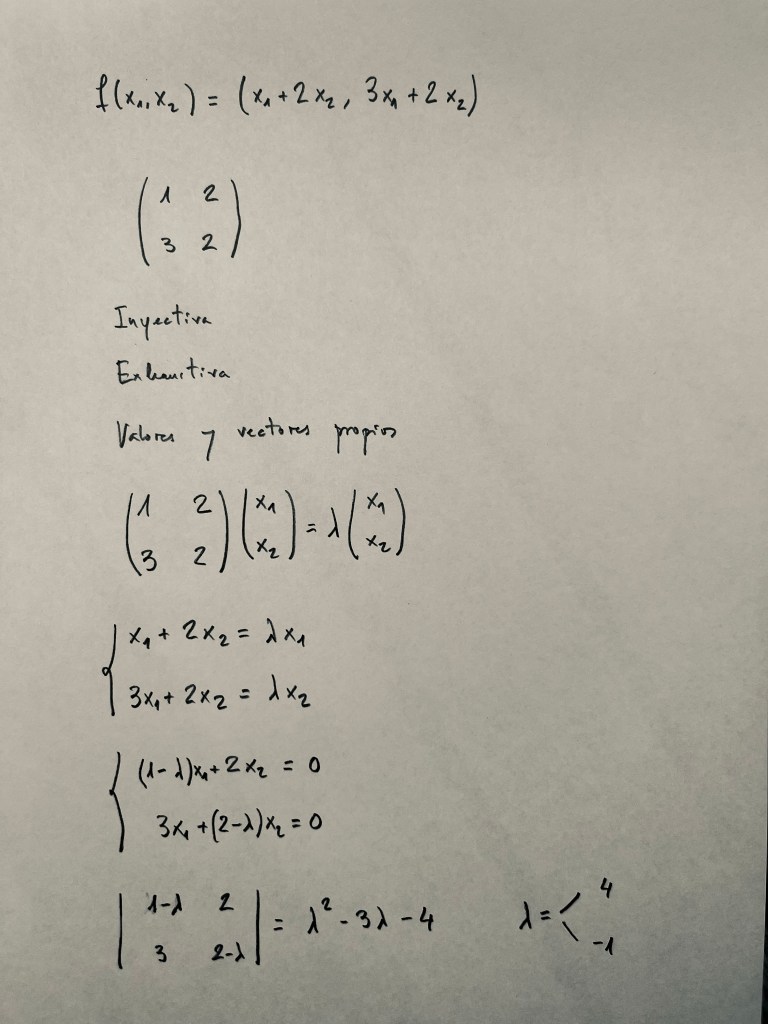 f(x₁, x₂) = (x₁ + 2x₂, 3x₁ + 2x₂)
(1 2
3 2)
Inyectiva
Exhaustiva
Valores y vectores propios
(1 2
3 2) (x₁
x₂) = λ (x₁
x₂)
{ x₁ + 2x₂ = λx₁
3x₁ + 2x₂ = λx₂
{ (1-λ)x₁ + 2x₂ = 0
3x₁ + (2-λ)x₂ = 0
| 1-λ 2
3 2-λ | = λ² - 3λ - 4 λ = < 4
-1